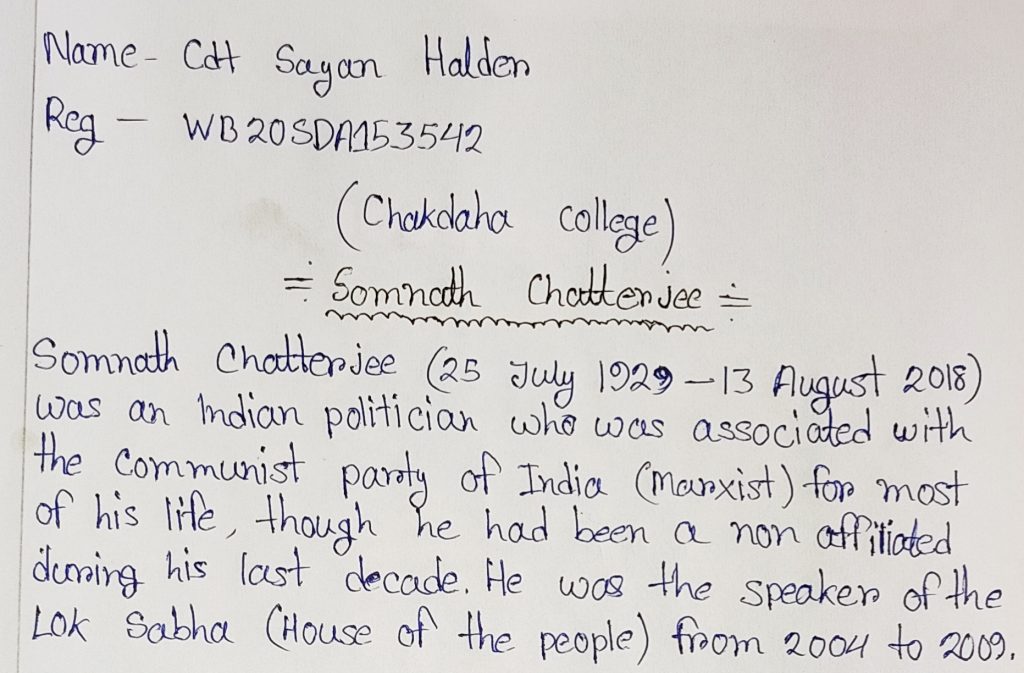 Name - Cdt Sayan Halder
Reg - WB20SDA153542
(Chakdaha college)
÷ Somnath Chatterjee ÷
Somnath Chatterjee (25 July 1929 - 13 August 2018)
was an Indian politician who was associated with
the Communist party of India (Marxist) for most
of his life, though he had been a non affiliated
during his last decade. He was the speaker of the
Lok Sabha (House of the people) from 2004 to 2009.